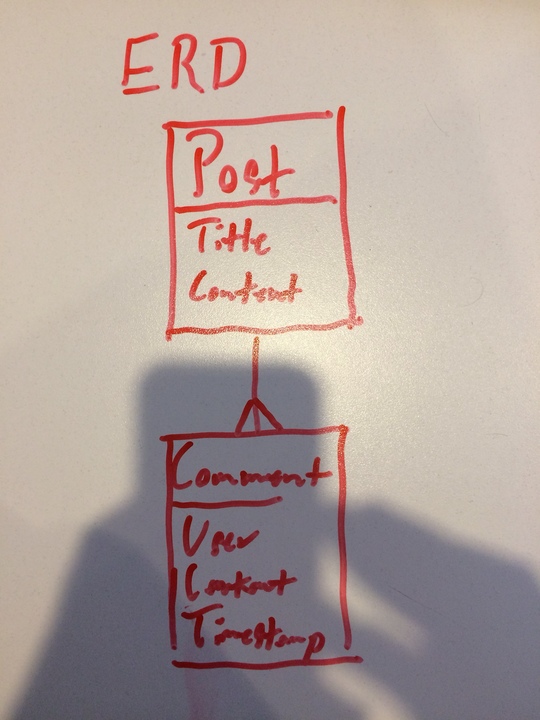 ERD
Post
Title
Content
Comment
User
Content
Timestamp